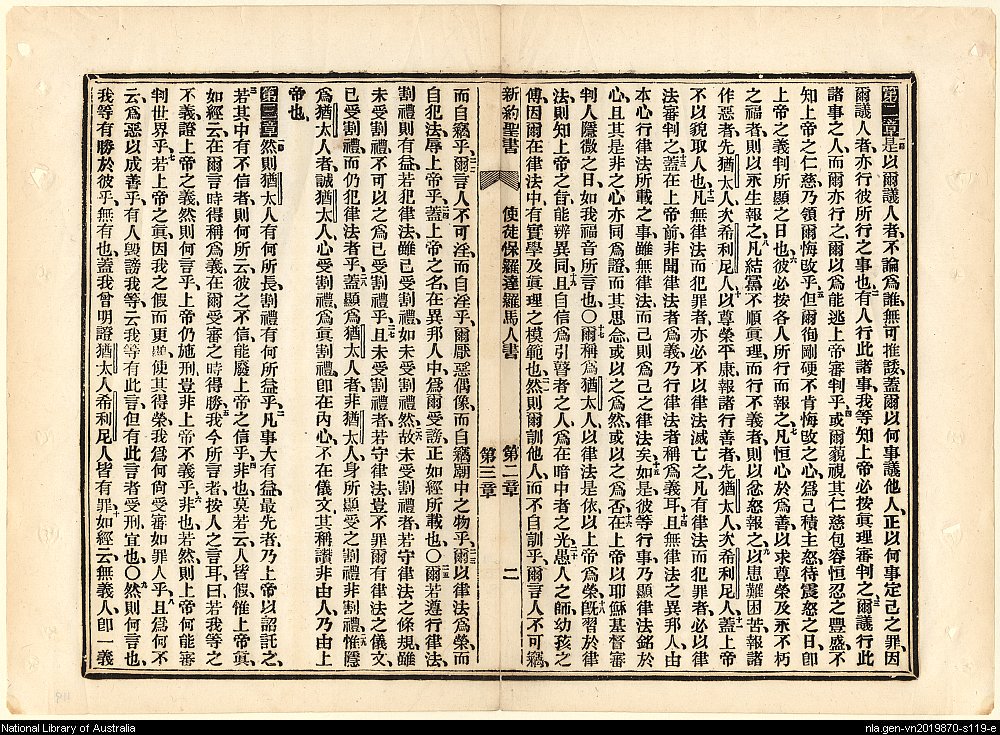 第二章是以爾議人者、不論爲誰、無可推諉、蓋爾以何事議他人、正以何事定己之罪、因
爾議人者、亦行彼所行之事也、有人行此諸事、我等知上帝必按眞理審判之、爾議行此
諸事之人、而爾亦行之、爾以爲能逃上帝審判乎、或爾藐視其仁慈包容恒忍之豐盛、不
知上帝之仁慈、乃領爾悔改乎、但爾徇剛硬不肯悔改之心、爲己積主怒、待震怒之日、卽
上帝之義判所顯之日也、彼必按各人所行而報之、凡恒心於爲善、以求尊榮及永不朽
之福者、則以永生報之、凡結黨不順眞理、而行不義者、則以忿怒報之、以患難困苦報諸
作惡者、先猶太人、次希利尼人、以尊榮平康報諸行善者、先猶太人、次希利尼人、蓋上帝
不以貌取人也、凡無律法而犯罪者、亦必不以律法滅亡之、凡有律法而犯罪者、必以律
法審判之、蓋在上帝前、非聞律法者爲義、乃行律法者稱爲義耳、且無律法之異邦人、由
本心行律法所載之事、雖無律法、而己則爲己之律法矣、如是、彼等行事、乃顯律法銘於
心、且其是非之心、亦同爲證、而其思念、或以之爲然、或以之爲否、在上帝以耶穌基督審
判人隱微之日、如我福音所言也、○爾稱爲猶太人、以律法是依、以上帝爲榮、旣習於律
法、則知上帝之旨、能辨異同、且自信爲引瞽者之人、爲在暗中者之光、愚人之師、幼孩之
傅、因爾在律法中有實學及眞理之模範也、然則爾訓他人、而不自訓乎、爾言人不可竊、
新約聖書 使徒保羅達羅馬人書 第二章 第三章 二
而自竊乎、爾言人不可淫、而自淫乎、爾厭惡偶像、而自竊廟中之物乎、爾以律法爲榮、而
自犯法、辱上帝乎、蓋上帝之名、在異邦人中、爲爾受謗、正如經所載也、○爾若遵行律法、
割禮則有益、若犯律法、雖已受割禮、如未受割禮然、故未受割禮者、若守律法之條規、雖
未受割禮、不可以之爲已受割禮乎、且未受割禮者、若守律法、豈不罪爾有律法之儀文、
已受割禮、而仍犯律法者乎、蓋顯爲猶太人者非猶太人、身所顯受之割禮非割禮、惟隱
爲猶太人者、誠猶太人、心受割禮、爲眞割禮、卽在內心、不在儀文、其稱讚非由人、乃由上
帝也、
第三章然則猶太人有何所長、割禮有何所益乎、凡事大有益、最先者、乃上帝以詔託之、
若其中有不信者、則何所云、彼之不信、能廢上帝之信乎、非也、莫若云人皆假、惟上帝眞、
如經云、在爾言時得稱爲義、在爾受審之時得勝、我今所言者、按人之言耳、曰、若我等之
不義、證上帝之義、然則何言乎、上帝仍施刑、豈非上帝不義乎、非也、若然、則上帝何能審
判世界乎、若上帝之眞、因我之假而更顯、使其得榮、我爲何尙受審如罪人乎、且爲何不
云、爲惡以成善乎、有人毀謗我等、云我等有此言、但有此言者、受刑宜也、○然則何言也、
我等有勝於彼乎、無有也、蓋我曾明證猶太人希利尼人皆有罪、如經云、無義人、卽一義
National Library of Australia
nla.gen-vn2019870-s119-e